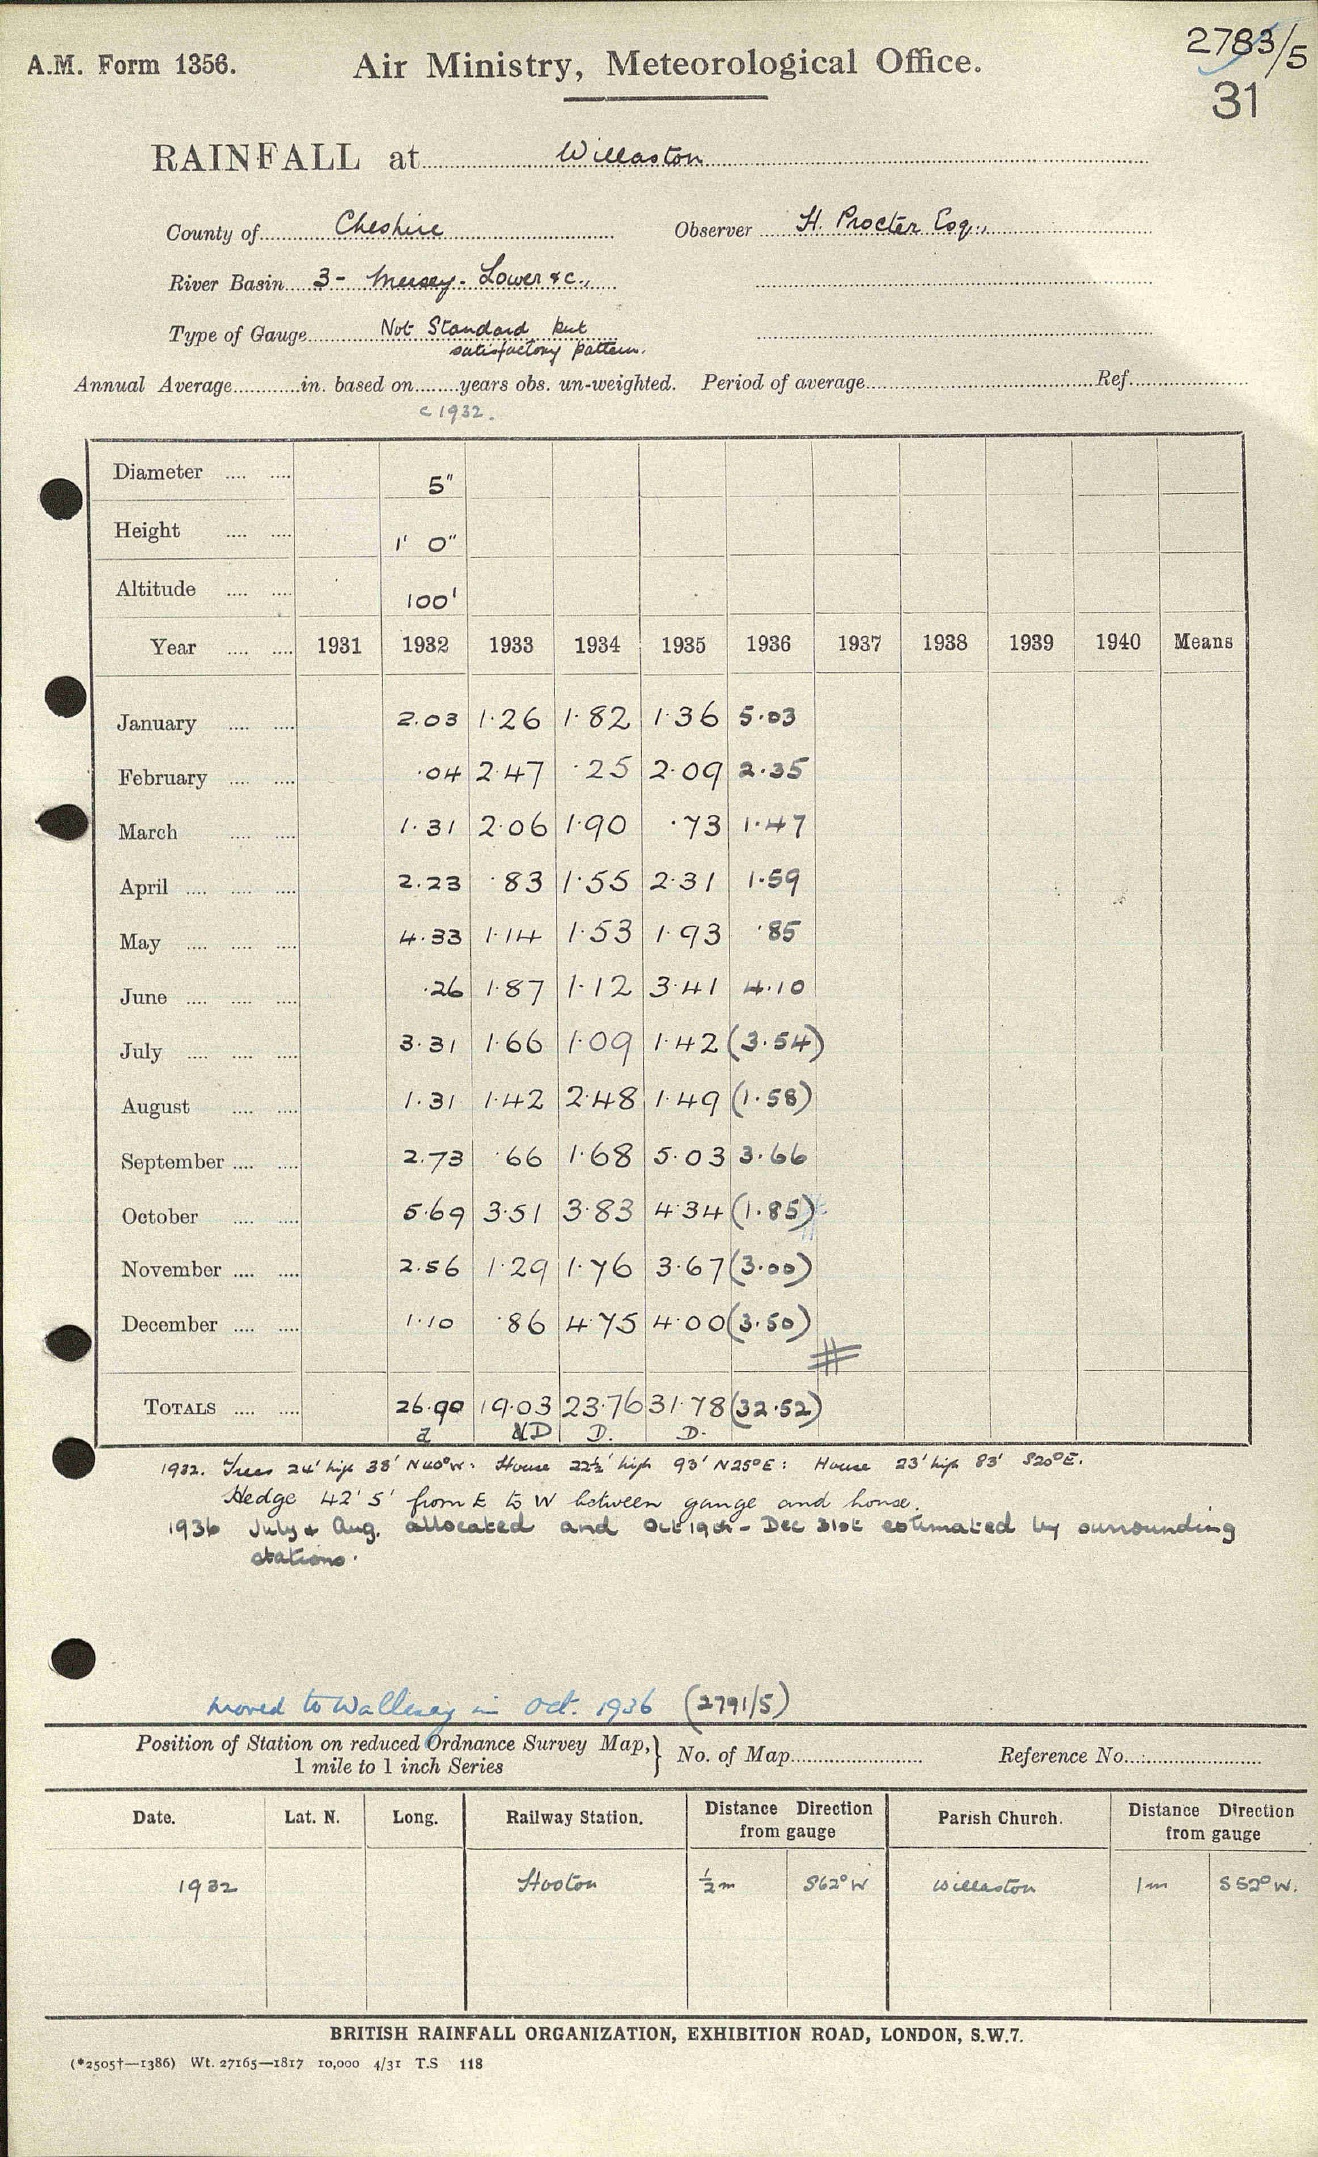 2783/5
A.M. Form 1356. Air Ministry, Meteorological Office.
31
RAINFALL at Willaston
County of Cheshire Observer H. Procter Esq.,
River Basin 3- Mersey. Lower &c.,
Type of Gauge Not Standard but
satisfactory pattern.
Annual Average in. based on years obs. un-weighted. Period of average Ref.
c 1932.
Diameter 5"
Height 1' 0"
Altitude 100'
Year 1931 1932 1933 1934 1935 1936 1937 1938 1939 1940 Means
January 2.03 1.26 1.82 1.36 5.03
February .04 2.47 .25 2.09 2.35
March 1.31 2.06 1.90 .73 1.47
April 2.23 .83 1.55 2.31 1.59
May 4.33 1.14 1.53 1.93 .85
June .26 1.87 1.12 3.41 4.10
July 3.31 1.66 1.09 1.42 (3.54)
August 1.31 1.42 2.48 1.49 (1.58)
September 2.73 .66 1.68 5.03 3.66
October 5.69 3.51 3.83 4.34 (1.85)
November 2.56 1.29 1.76 3.67 (3.00)
December 1.10 .86 4.75 4.00 (3.50)
TOTALS 26.90 19.03 23.76 31.78 (32.52)
D. D.
1932. Trees 24' high 38' N40°W: House 22½' high 93' N25°E: House 23' high 83' S20°E.
Hedge 42' 5' from E to W between gauge and house.
1936 July & Aug. allocated and Oct 19th - Dec 31st estimated by surrounding
stations.
Moved to Wallasey in Oct. 1936 (2791/5)
Position of Station on reduced Ordnance Survey Map,
1 mile to 1 inch Series } No. of Map Reference No.
Date. Lat. N. Long. Railway Station. Distance Direction from gauge Parish Church. Distance Direction from gauge
1932 Hooton ½m S62°W Willaston 1m S52°W.
BRITISH RAINFALL ORGANIZATION, EXHIBITION ROAD, LONDON, S.W.7.
(*2505†—1386) Wt. 27165—1817 10,000 4/31 T.S 118